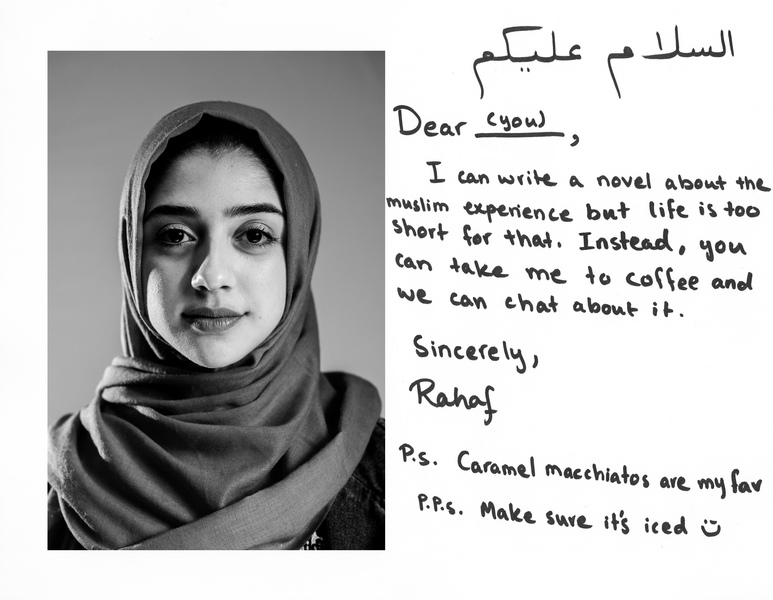 السلام عليكم
Dear (you),
I can write a novel about the
muslim experience but life is too
short for that. Instead, you
can take me to coffee and
we can chat about it.
Sincerely,
Rahaf
P.s. Caramel macchiatos are my fav
P.P.s. Make sure it's iced